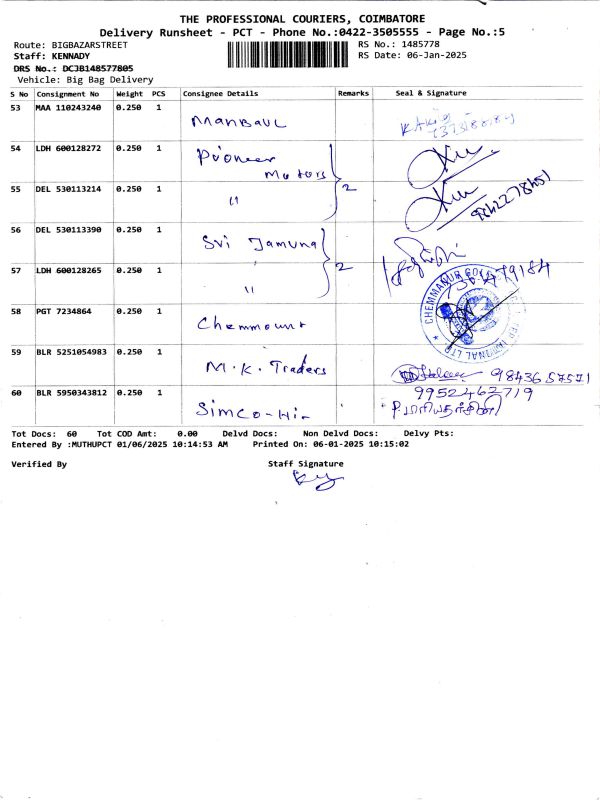 THE PROFESSIONAL COURIERS, COIMBATORE
Delivery Runsheet - PCT - Phone No.:0422-3505555 - Page No.:5
Route: BIGBAZARSTREET RS No.: 1485778
Staff: KENNADY RS Date: 06-Jan-2025
DRS No.: DCJB148577805
Vehicle: Big Bag Delivery
S No Consignment No Weight PCS Consignee Details Remarks Seal & Signature
53 MAA 110243240 0.250 1 Manbaul
54 LDH 600128272 0.250 1 Pioneer Motors
55 DEL 530113214 0.250 1 " 2 9842278451
56 DEL 530113390 0.250 1 Sri Jamuna
57 LDH 600128265 0.250 1 " 2
CHEMMANUR
58 PGT 7234864 0.250 1 Chemmount
59 BLR 5251054983 0.250 1 M.K. Traders 9843657571
60 BLR 5950343812 0.250 1 Simco-Hi- 9952462719
P.மாரியதர்சினி
Tot Docs: 60 Tot COD Amt: 0.00 Delvd Docs: Non Delvd Docs: Delvy Pts:
Entered By :MUTHUPCT 01/06/2025 10:14:53 AM Printed On: 06-01-2025 10:15:02
Verified By Staff Signature